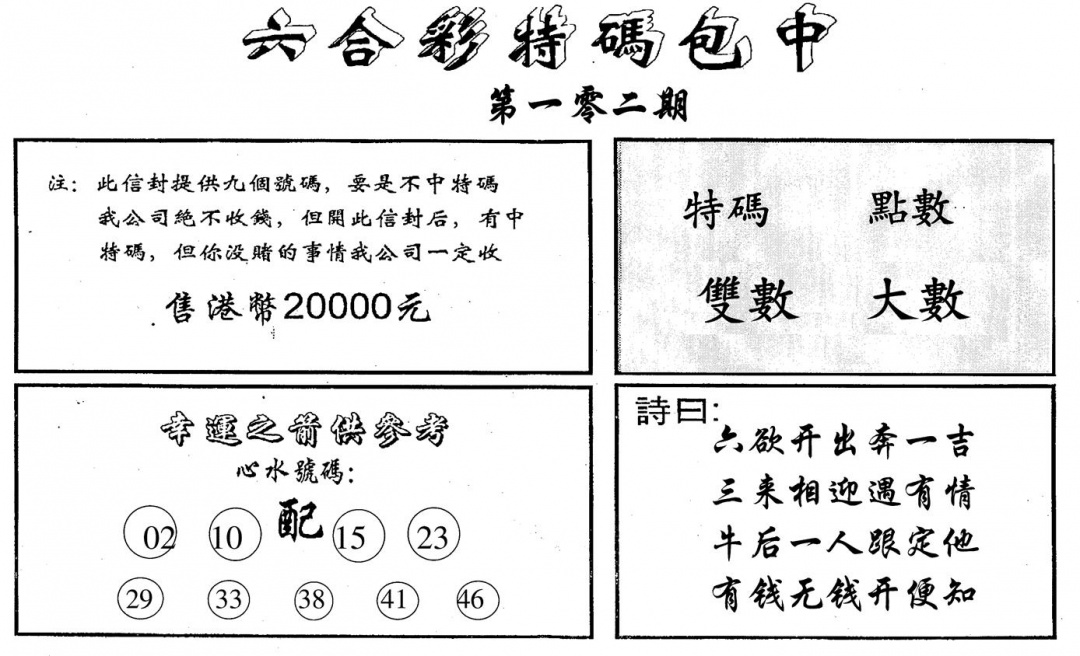 六合彩特碼包中
第一零二期
注：此信封提供九個號碼，要是不中特碼
我公司絕不收錢，但開此信封后，有中
特碼，但你没賭的事情我公司一定收
售港幣20000元
特碼 點數
雙數 大數
幸運之箭供參考
心水號碼：
配
02 10 15 23
29 33 38 41 46
詩曰：
六欲开出奔一吉
三来相迎遇有情
牛后一人跟定他
有钱无钱开便知